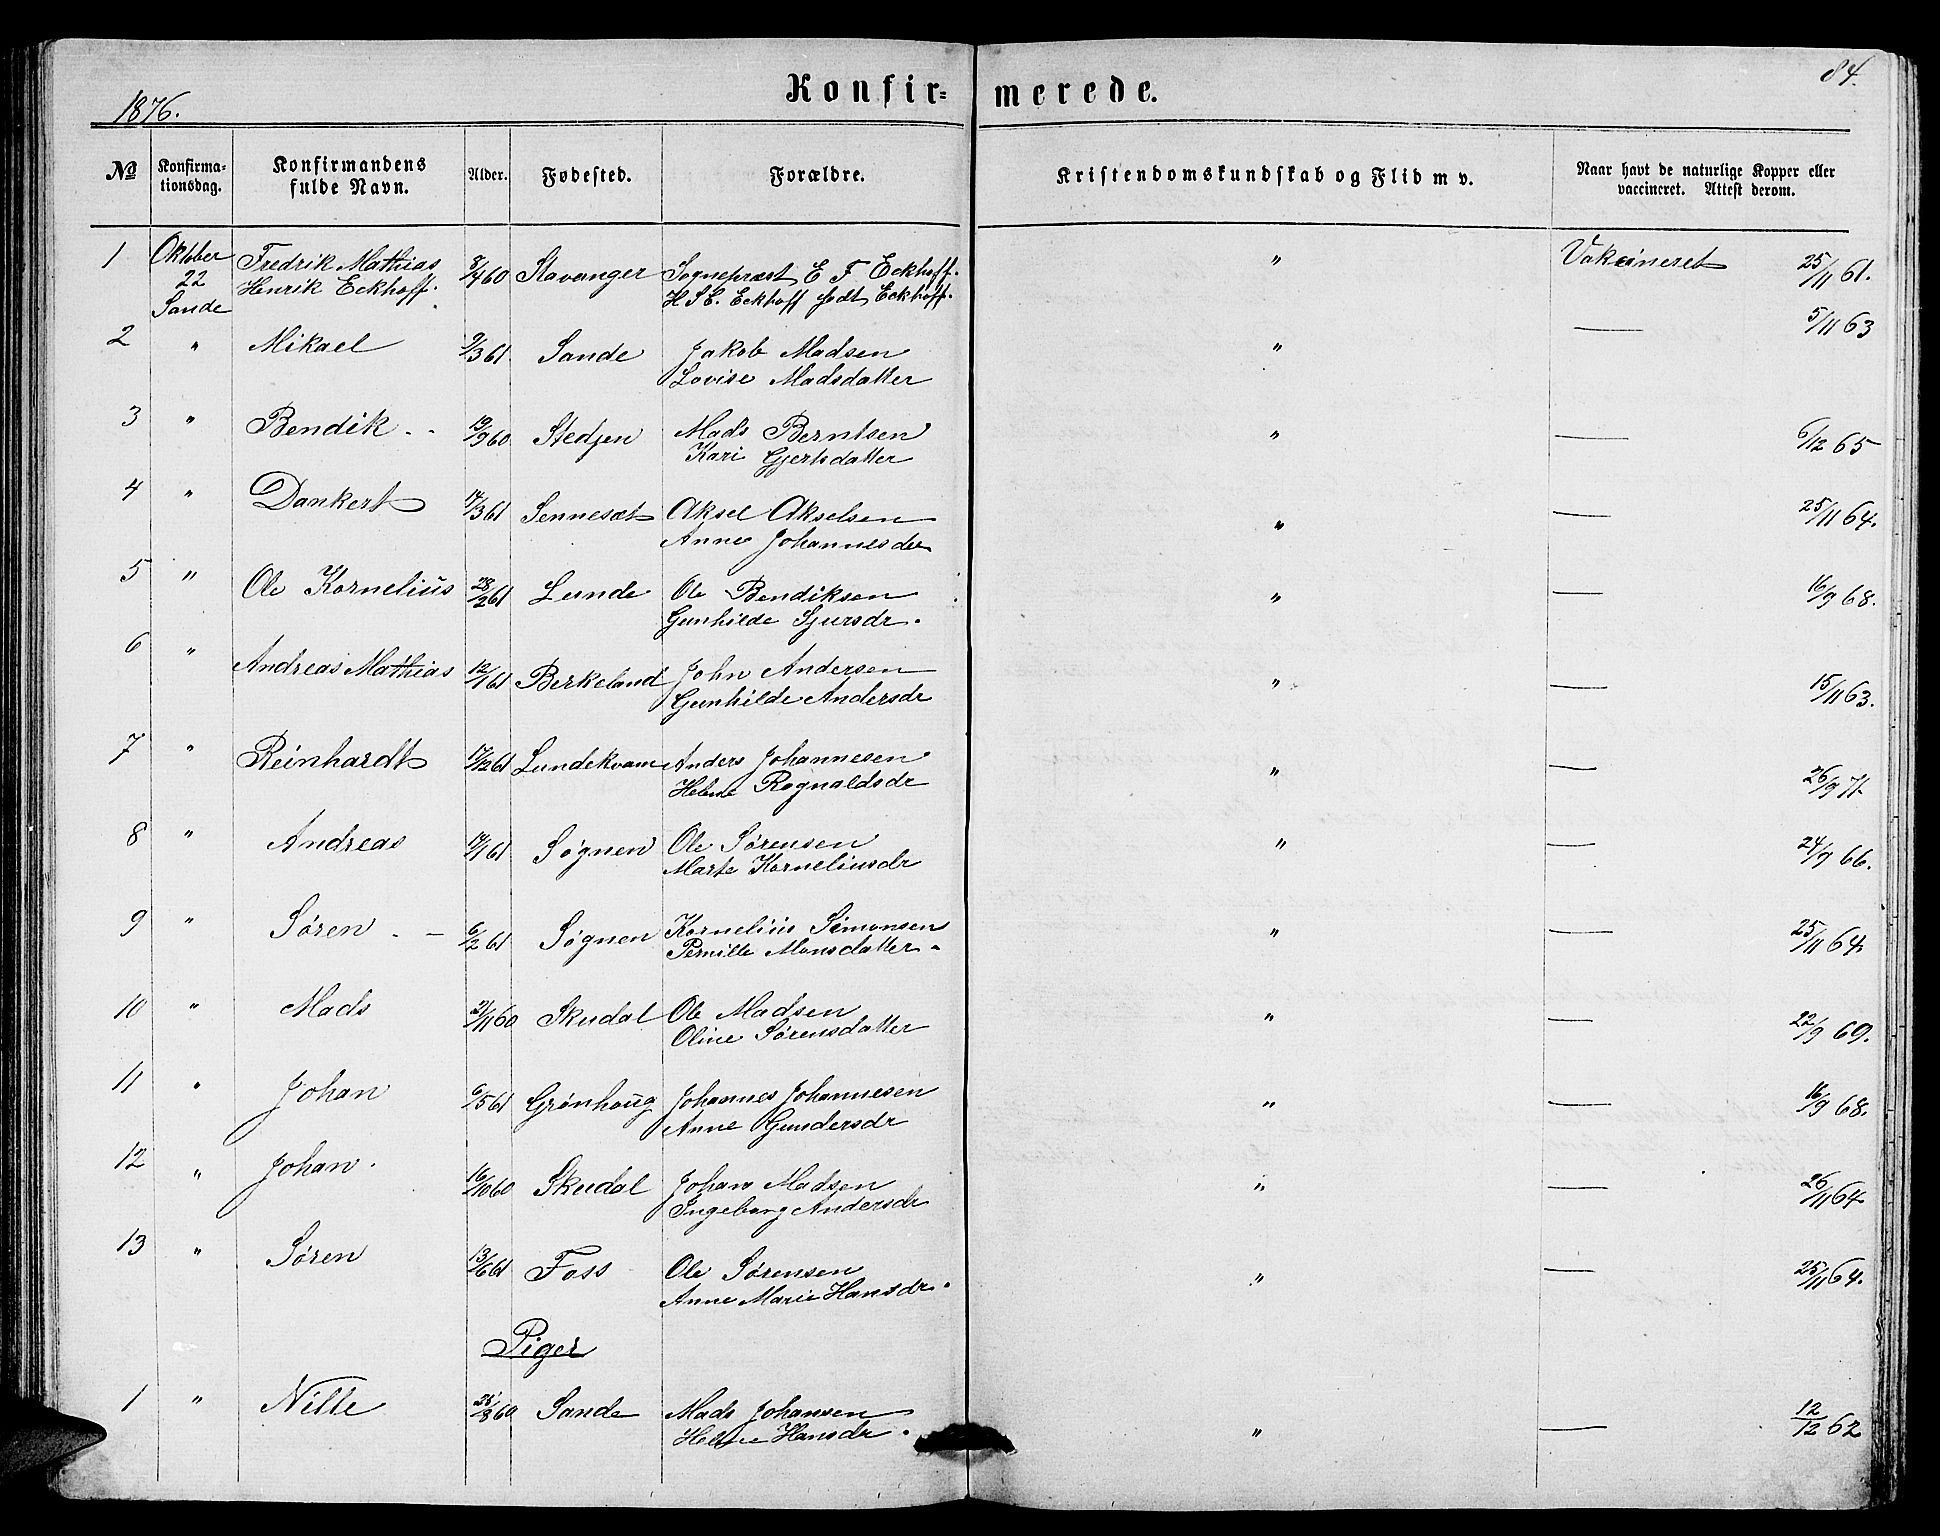 1876.
Konfir-merede.
84.
No
Konfirma-
tionsdag.
Konfirmandens
fulde Navn.
Alder.
Fødested.
Forældre.
Kristendomskundskab og Flid m v.
Naar havt de naturlige Kopper eller
vaccineret. Attest derom.
1 Oktober Fredrik Mathias 8/4 60 Stavanger Sognepræst E F Eckhoff. " Vakcineret 25/11 61.
22 Henrik Eckhoff. H S E. Eckhoff født Eckhoff.
Sande
2 " Mikael 9/3 61 Sande Jakob Madsen " — 5/11 63
Lovise Madsdatter
3 " Bendik 19/9 60 Stedjen Mads Berntsen " — 6/12 65
Kari Gjertsdatter
4 " Dankert 14/3 61 Sennesæt Aksel Akselsen " — 25/11 64.
Anne Johannesdr
5 " Ole Kornelius 28/2 61 Lunde Ole Bendiksen " — 16/9 68.
Gunhilde Sjursdr.
6 " Andreas Mathias 12/1 61 Berkeland John Andersen " — 15/11 63.
Gunhilde Andersdr
7 " Reinhardt 17/2 61 Lundekvam Anders Johannesen " — 26/9 71.
Helene Rognaldsdr
8 " Andreas 19/1 61 Søgnen Ole Sørensen " — 24/9 66.
Marte Korneliusdr
9 " Søren 6/2 61 Søgnen Kornelius Simonsen " — 25/11 64
Pernille Monsdatter
10 " Mads 21/11 60 Skudal Ole Madsen " — 22/9 69.
Oline Sørensdatter
11 " Johan 6/5 61 Grønhaug Johannes Johannesen " — 16/9 68.
Anne Gundersdr
12 " Johan. 16/10 60 Skudal Johan Madsen " — 26/11 64
Ingeborg Andersdr
13 " Søren 13/6 61 Foss Ole Sørensen " — 25/11 64.
Anne Marie Hansdr.
Piger
1 " Nille /8 60 Sande Mads Johansen " — 12/12 62
Helene Hansdr.